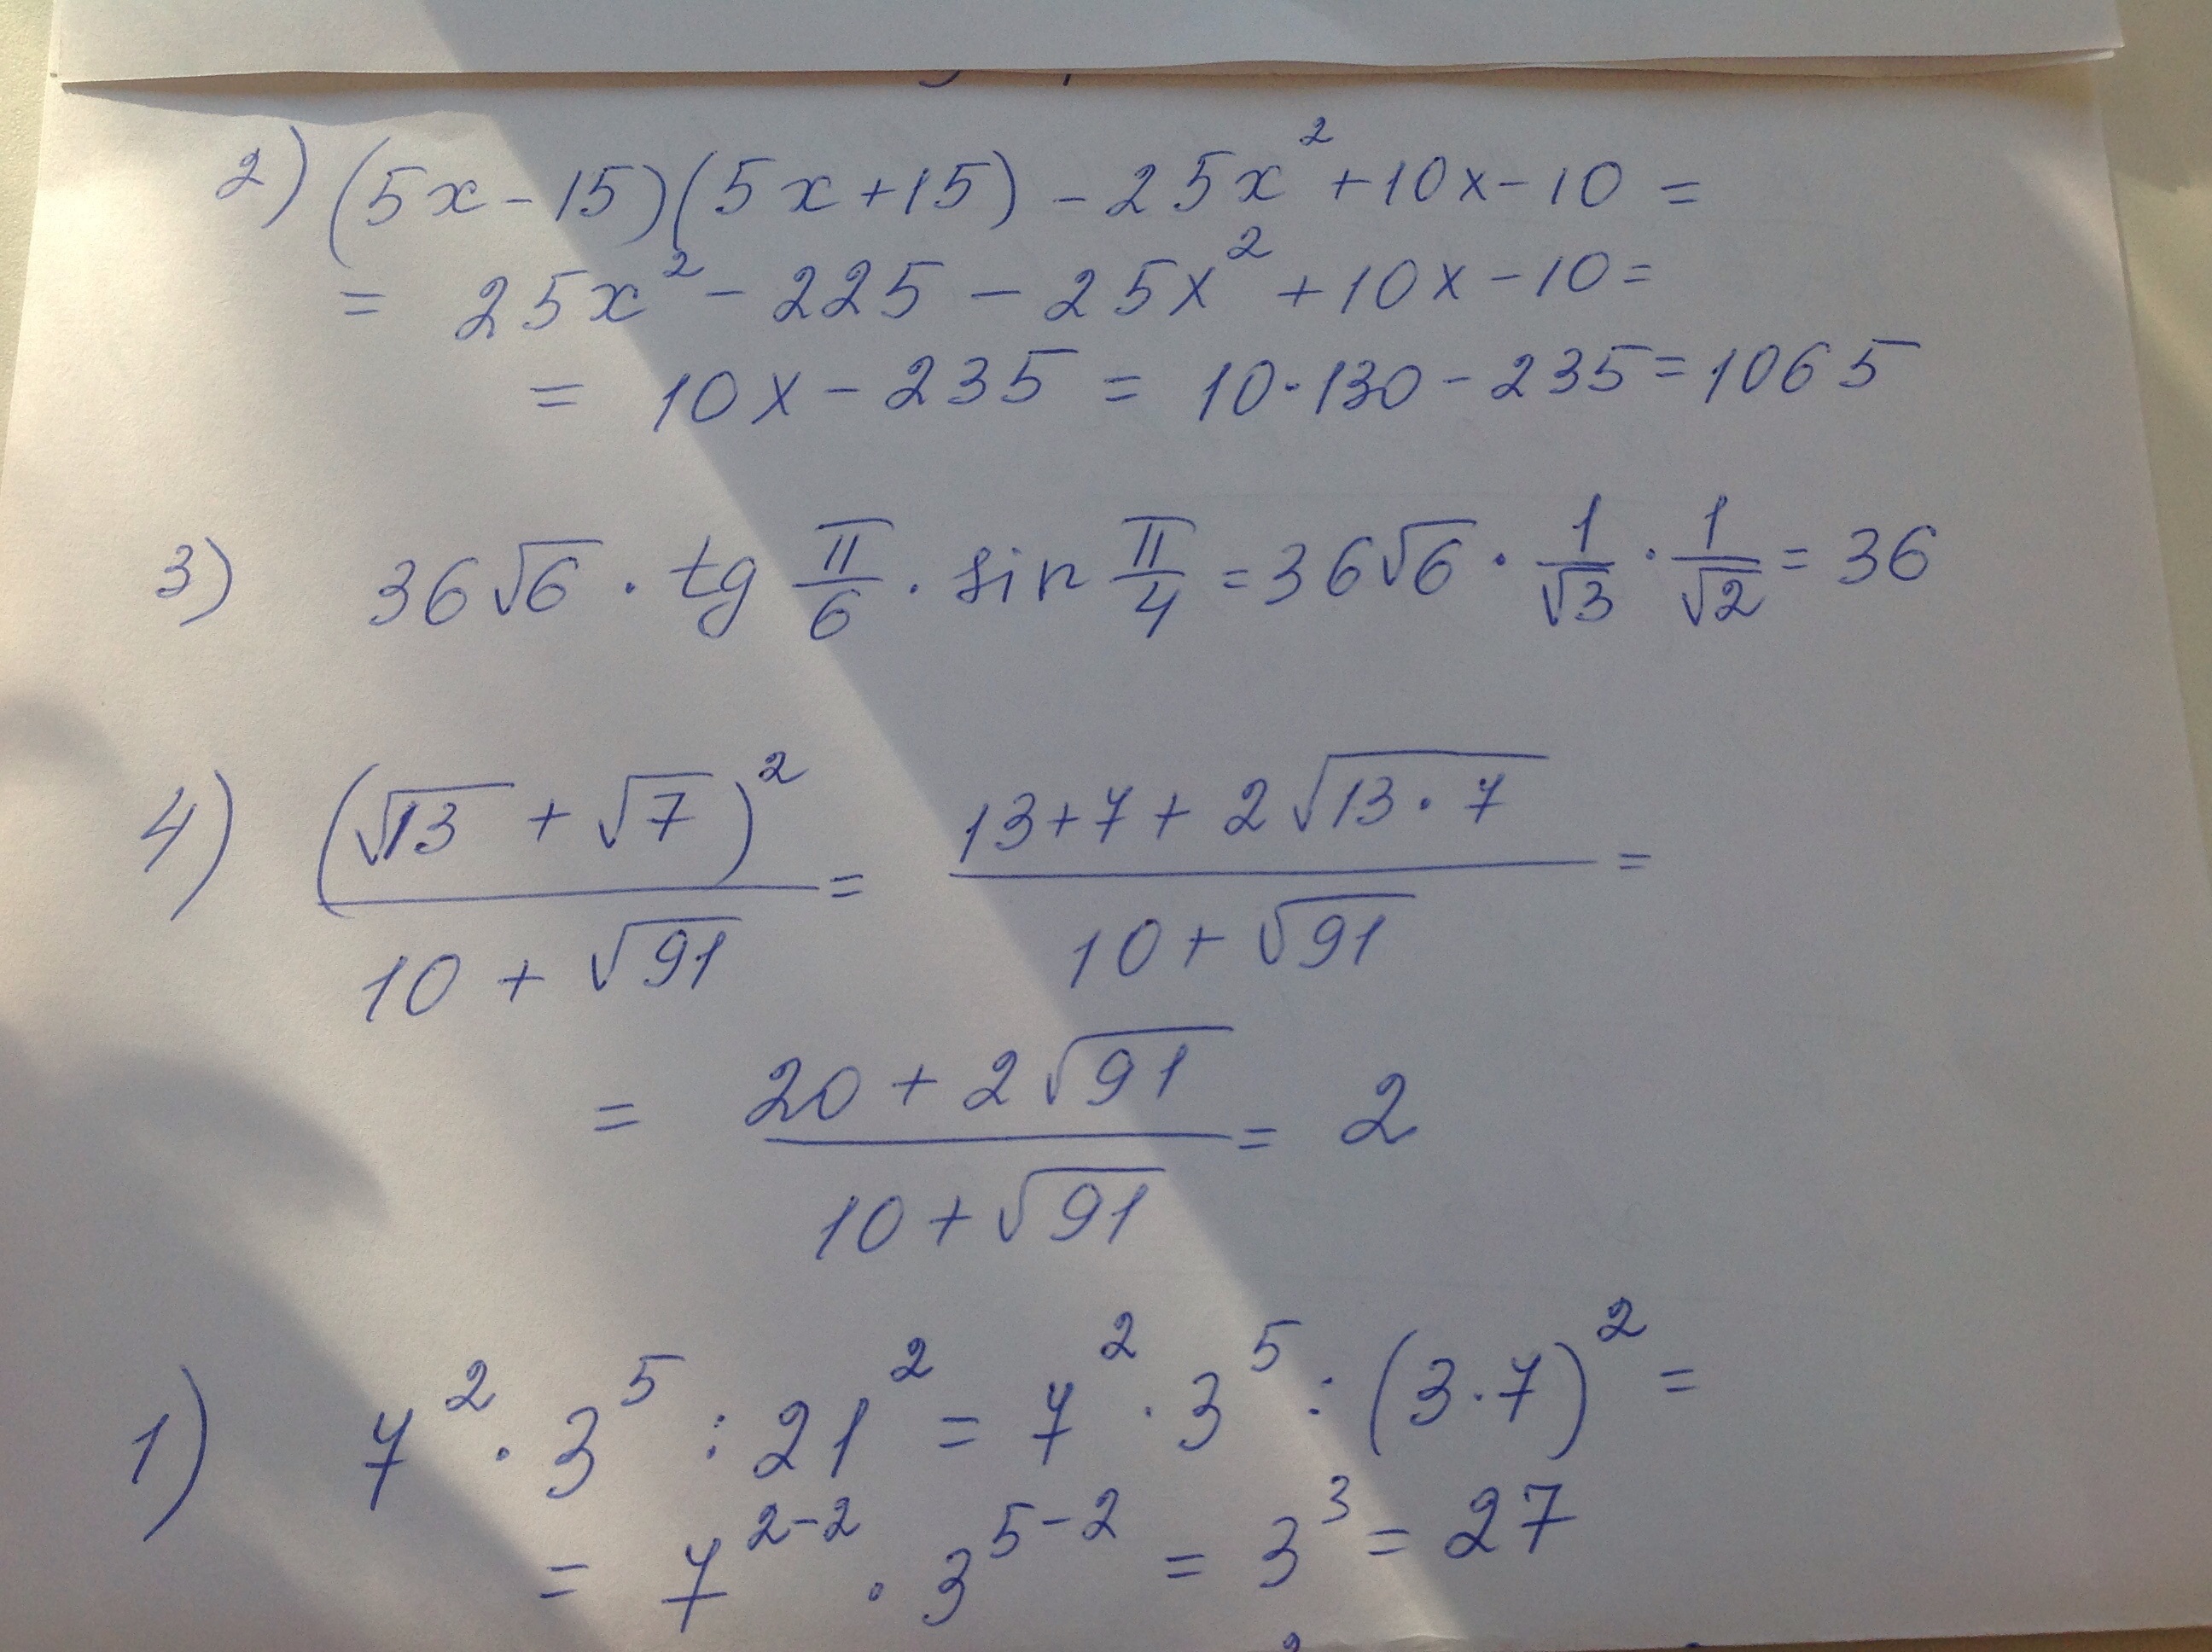 2) (5x-15)(5x+15) - 25x² + 10x - 10 =
= 25x² - 225 - 25x² + 10x - 10 =
= 10x - 235 = 10·130 - 235 = 1065
3) 36√6 · tg π/6 · sin π/4 = 36√6 · 1/√3 · 1/√2 = 36
4) (√13 + √7)² / (10 + √91) = (13 + 7 + 2√(13·7)) / (10 + √91) =
= (20 + 2√91) / (10 + √91) = 2
1) 7² · 3⁵ : 21² = 7² · 3⁵ : (3·7)² =
= 7²⁻² · 3⁵⁻² = 3³ = 27